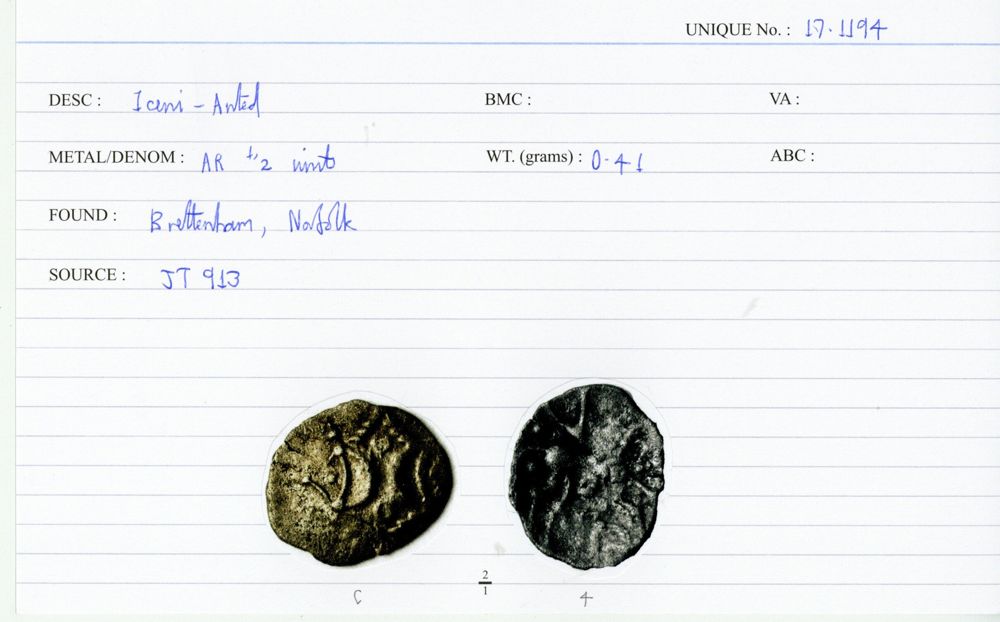 UNIQUE No. : 17.1194
DESC : Iceni - Anted BMC : VA :
METAL/DENOM : AR 1/2 unit WT. (grams) : 0.41 ABC :
FOUND : Brettenham, Norfolk
SOURCE : JT 913
2
1
C 4